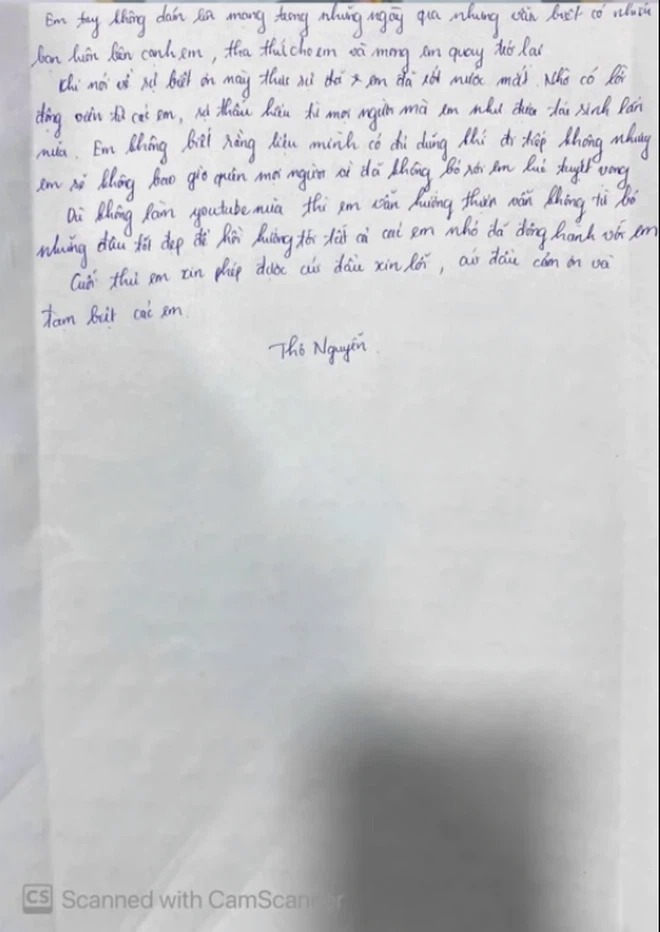 Em tuy không dám lên mạng trong những ngày qua nhưng vẫn biết có nhiều
bạn luôn bên cạnh em, tha thứ cho em và mong em quay trở lại
Khi nói về sự biết ơn này thực sự đã em đã rơi nước mắt. Nhờ có lời
động viên từ các em, sự thấu hiểu từ mọi người mà em như được tái sinh lần
nữa. Em không biết rằng liệu mình có đủ dũng khí đi tiếp không nhưng
em sẽ không bao giờ quên mọi người vì đã không bỏ rơi em lúc tuyệt vọng
Dù không làm youtube nữa thì em vẫn hướng thiện vẫn không từ bỏ
những điều tốt đẹp để hồi hướng tới tất cả các em nhỏ đã đồng hành với em
Cuối thư em xin phép được cúi đầu xin lỗi, cúi đầu cảm ơn và
tạm biệt các em.
Thơ Nguyễn
CS Scanned with CamScanner